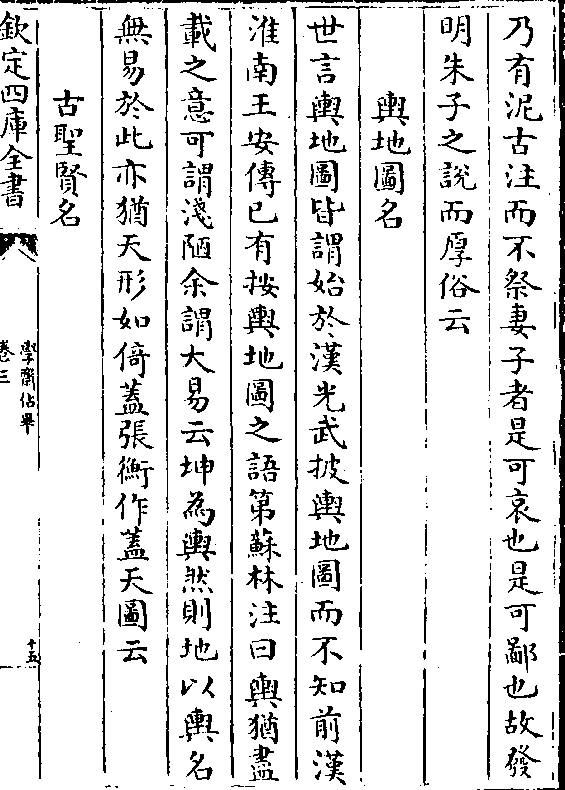 乃有泥古注而不祭妻子者是可哀也是可鄙也故發
明朱子之說而厚俗云
輿地圖名
世言輿地圖皆謂始於漢光武披輿地圖而不知前漢
淮南王安傳已有按輿地圖之語第蘇林注曰輿猶盡
載之意可謂淺陋余謂大易云坤為輿然則地以輿名
無易於此亦猶天形如倚蓋張衡作蓋天圖云
古聖賢名
欽定四庫全書
學齋佔畢
卷三
十五